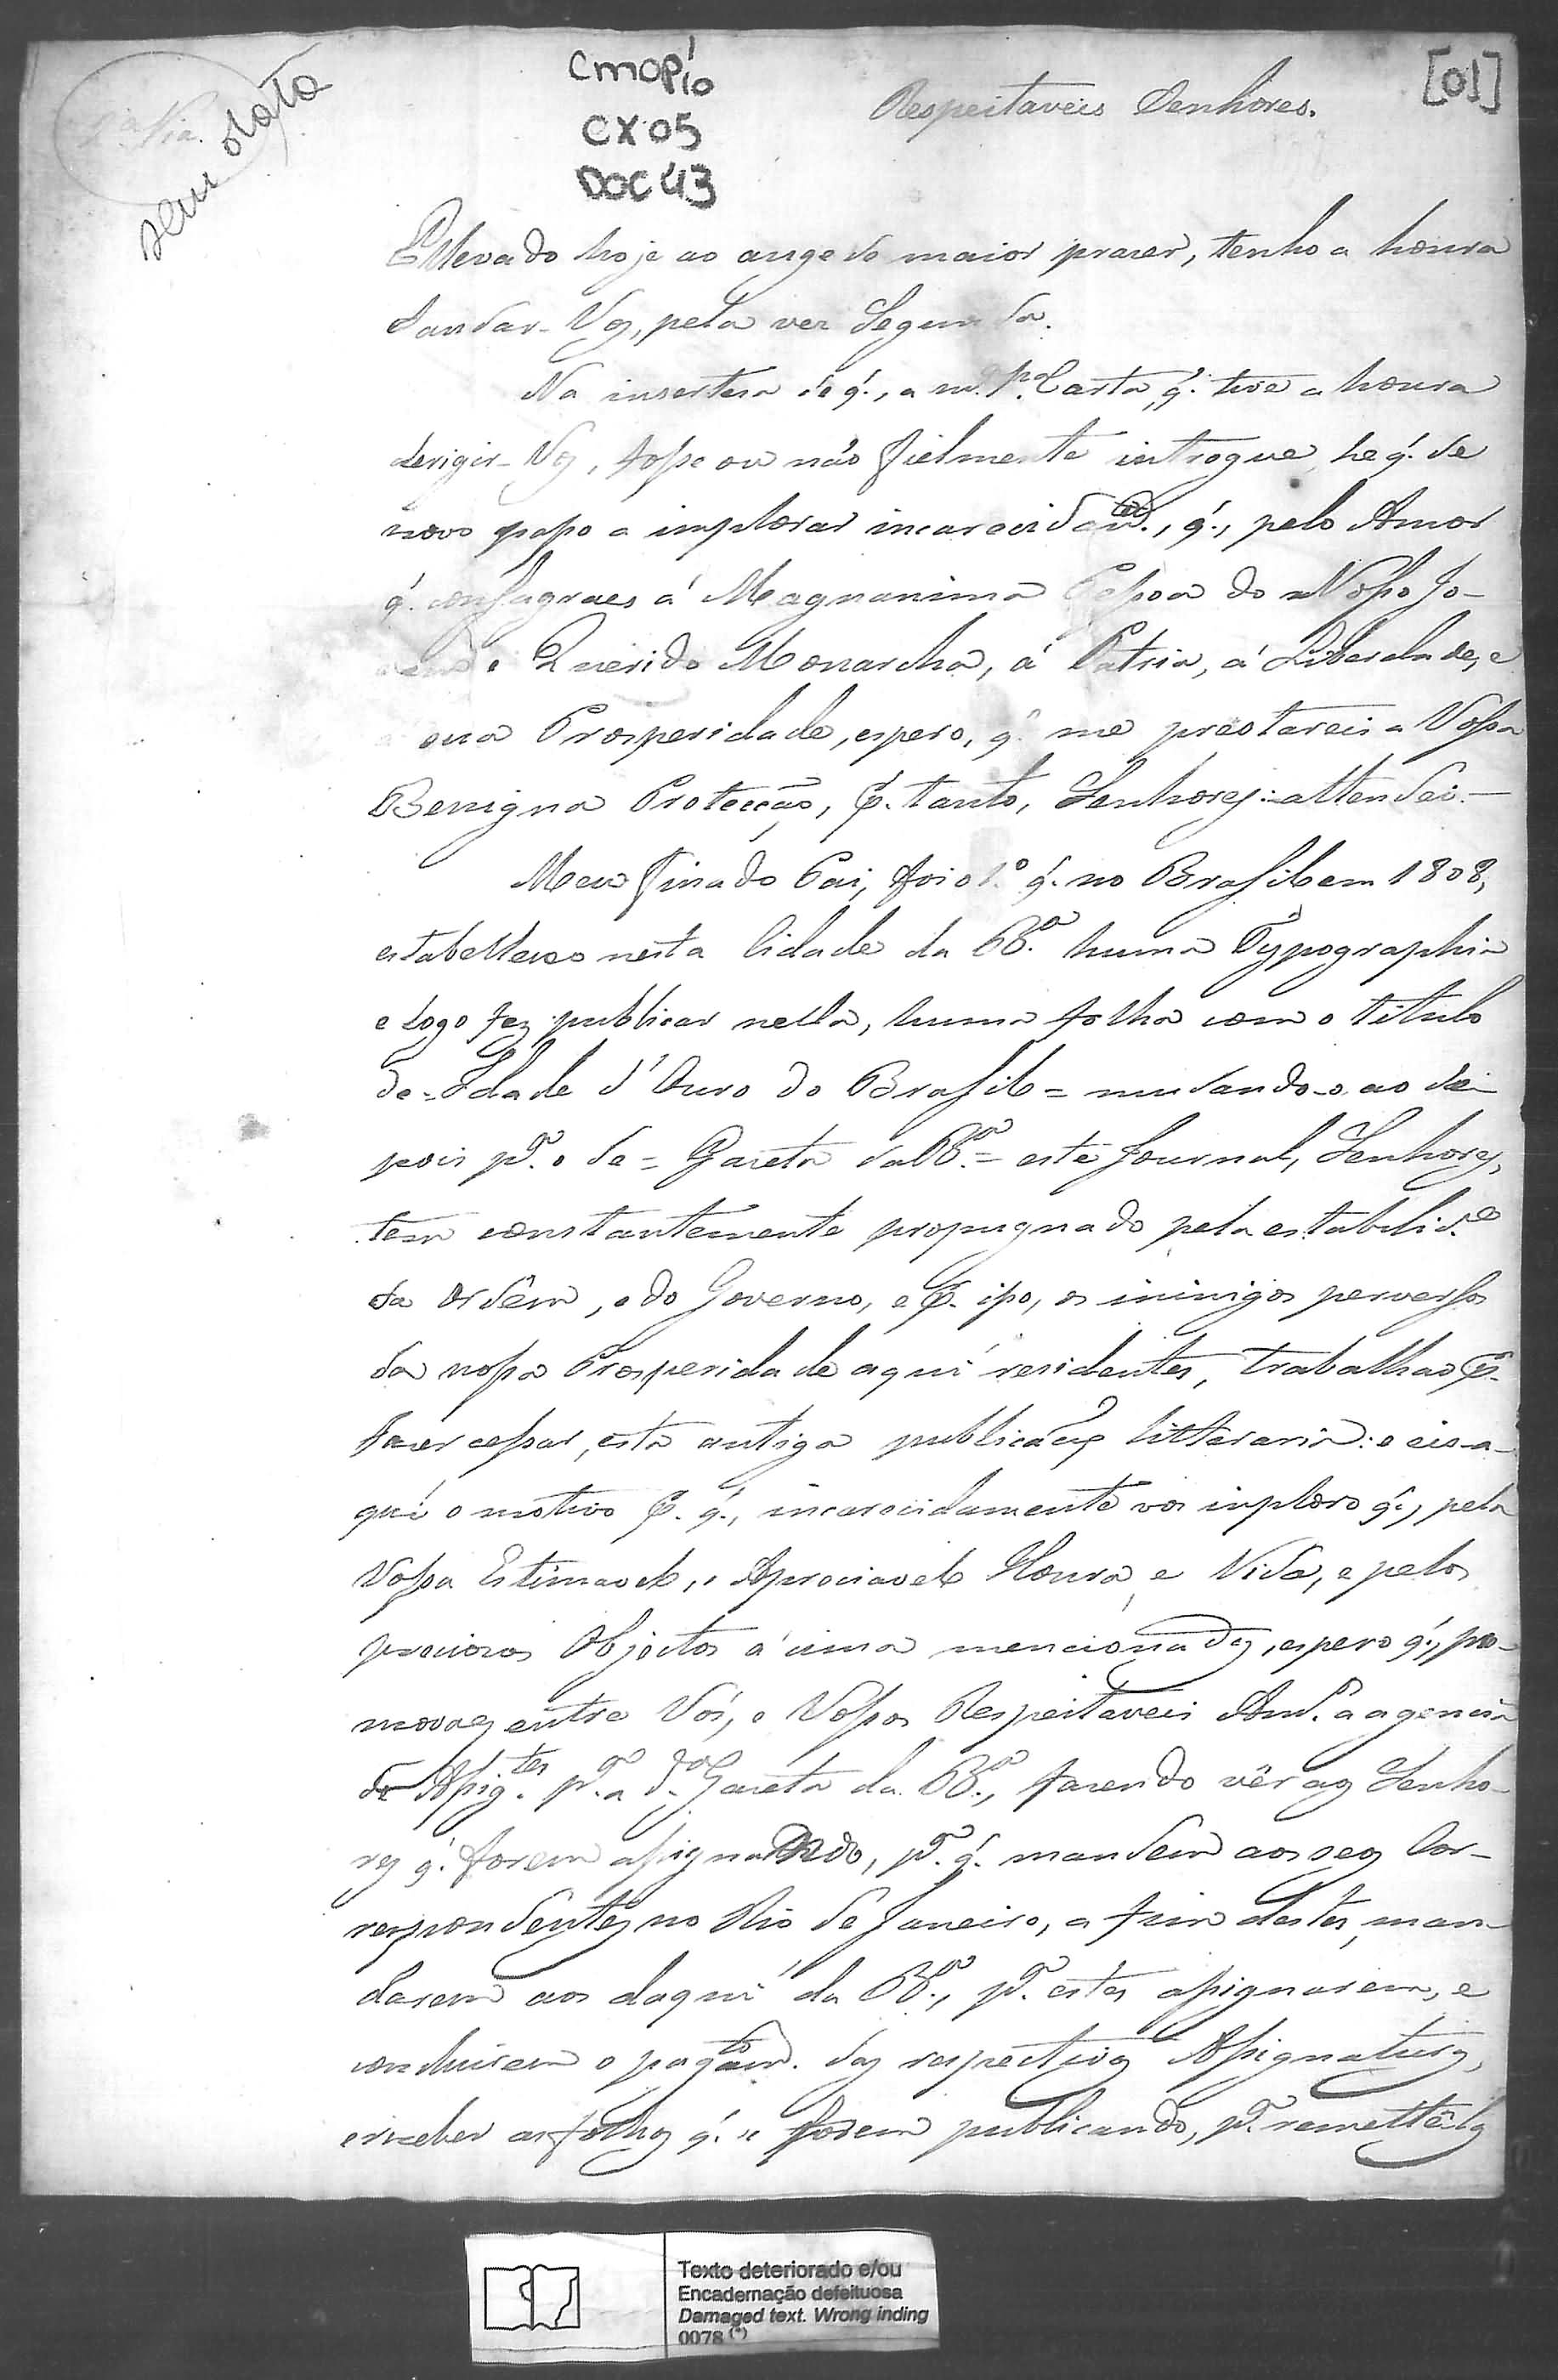 CMOP/10
CX 05
DOC 43
[01]
2ª Via.
sem data
Respeitaveis Senhores.
Ellevado hoje ao auge do maior prazer, tenho a honra
Saudar-Vos, pela vez Segunda.
Na inserteza de q.', a m.ª 1.ª Carta, q.' tive a honra
derigir-Vos, fosse ou não fielmente intregue, he q.' de
novo passo a implorar incarecidam.e, q.', pelo Amor
q.' consagraes á Magnanima Pessoa do Nosso Jo-
e Querido Monarcha, á Patria, á Liberdade, e
sua Prosperidade, espero, q.' me prestareis a Vossa
Benigna Protecção, p. tanto, Senhores: attendei.—
Meu finado Pai, foi o 1.º q.' no Brasil em 1808,
estabelleceo nesta Cidade da B.ª huma Typographia
e logo fez publicar nella, huma folha com o titulo
de = Idade d'Ouro do Brasil = mudando-o ao de-
pois p.ª o de = Gazeta da B.ª = este Journal, Senhores,
tem constantemente propugnado pela estabelid.e
da Ordem, e do Governo, e p. isso, os inimigos perversos
da nossa Prosperidade aqui residentes, trabalhão p.
fazer cessar, esta antiga publicação litteraria: e eis-a-
qui o motivo p. q.', incarecidamente vos imploro q.', pela
Vossa Estimavel, e Apreciavel Honra, e Vida, e pelos
preciosos Objectos a'cima mencionados, espero q.', pro-
movaes entre Vós, e Vossos Respeitaveis Am.os a agencia
de Assig.tes p.ª a d.ª Gazeta da B.ª, fazendo vêr aos Senho-
res q.' forem assignando, p.ª q.' mandem aos seos Cor-
respondentes no Rio de Janeiro, a fim destes, man-
darem aos daqui da B.ª, p.ª estes assignarem, e
conduirem o pagam.to das respectivas Assignaturas,
e receber as folhas q.' se forem publicando, p.ª remettê-las
Texto deteriorado e/ou
Encadernação defeituosa
Damaged text. Wrong inding
0078 (*)